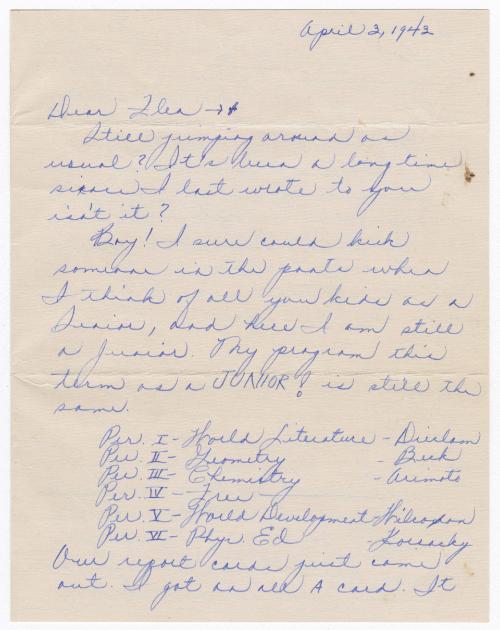 April 2, 1943
Dear Flea
Still jumping around as
usual? It's been a long time
since I last wrote to you
isn't it?
Boy! I sure could kick
someone in the pants when
I think of all you kids as a
Senior, and here I am still
a Junior. My program this
term as a JUNIOR! is still the
same.
Per. I - World Literature - Dierlam
Per. II - Geometry - Beck
Per. III - Chemistry - Arimoto
Per. IV - Free -
Per. V - World Development - Wilcoxon
Per. VI - Phys. Ed
Our report cards just came
out. I got an all A card. It